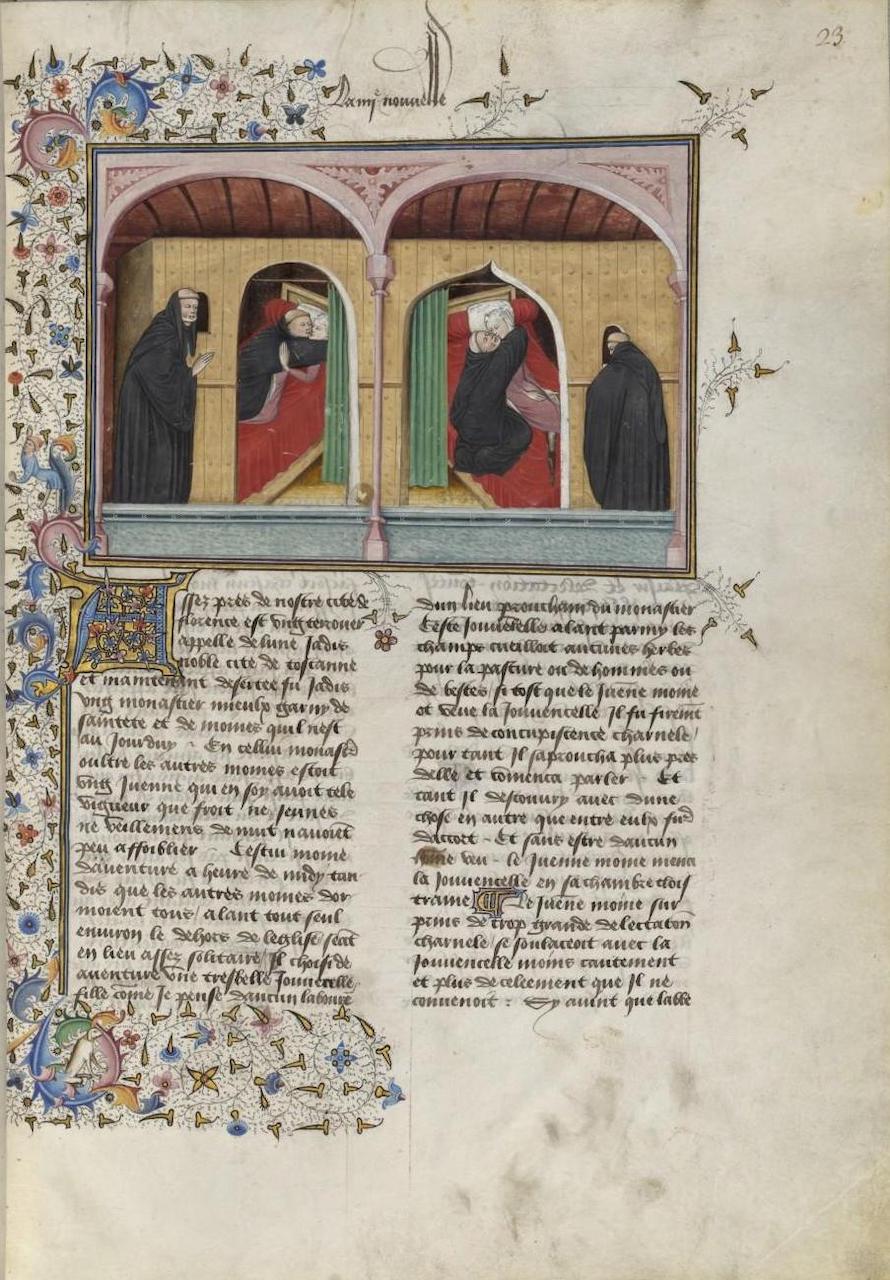 23
La iiiie nouuelle
Assez pres de nostre cite de
florence est vng terrouer
appelle de lune Jadis
noble cite de toscanne
et maintenant desertee fu Jadis
vng monastier mieulx garny de
saintete et de moines quil nest
au Jourduy · En cellui monastr
oultre les autres moines estoit
vng Juenne qui en soy auoit tele
vigueur que froit ne Jeunes
ne veillemens de nuit nauoient
peu affoiblier · Cestui moine
dauenture a heure de midy tan
dis que les autres moines dor
moient tous / alant tout seul
enuiron le dehors de leglise seant
en lieu assez solitaire / Il choisi de
auenture vne tresbelle Jouuecelle
fille come Je pense daucun laboure
dun lieu prouchain du monastier
Ceste Jouuecelle alant parmy les
champs cueilloit aucunes herbes
pour la pasture ou de hommes ou
de bestes / si tost que le Juene moine
ot veue la Jouuencelle Il fu firemt
prins de concupiscence charnele /
pour tant Il saproucha plus pres
delle et comenca parler · Et
tant Il descouury auec dune
chose en autre que entre eulx fut
daccort · Et sans estre daucun
veu · le Juenne moine mena
la Jouuencelle en sa chambre clois
traine Le Juene moine sur
prins de trop grande delectation
charnele / se soulacoit auec la
Jouuencelle moins cautement
et plus deceleement que Il ne
conuenoit : Sy auint que labbe